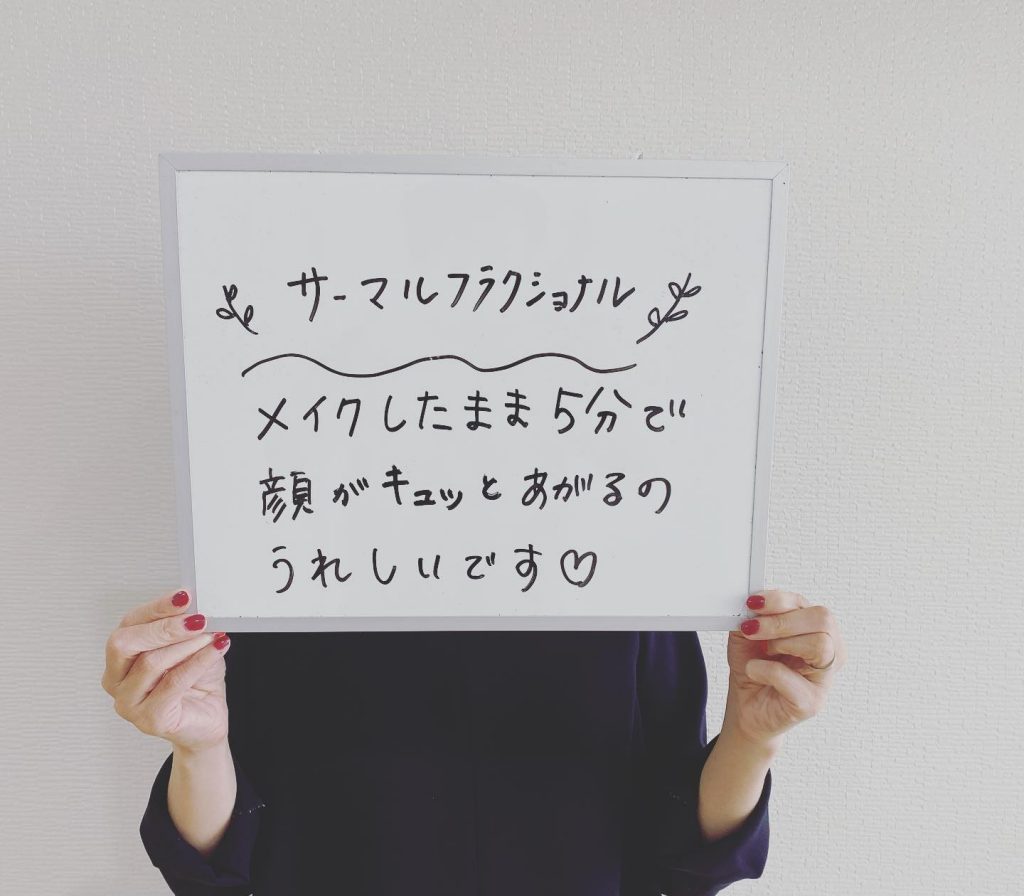 サーマルフラクショナル
メイクしたまま5分で
顔がキュッとあがるの
うれしいです♡